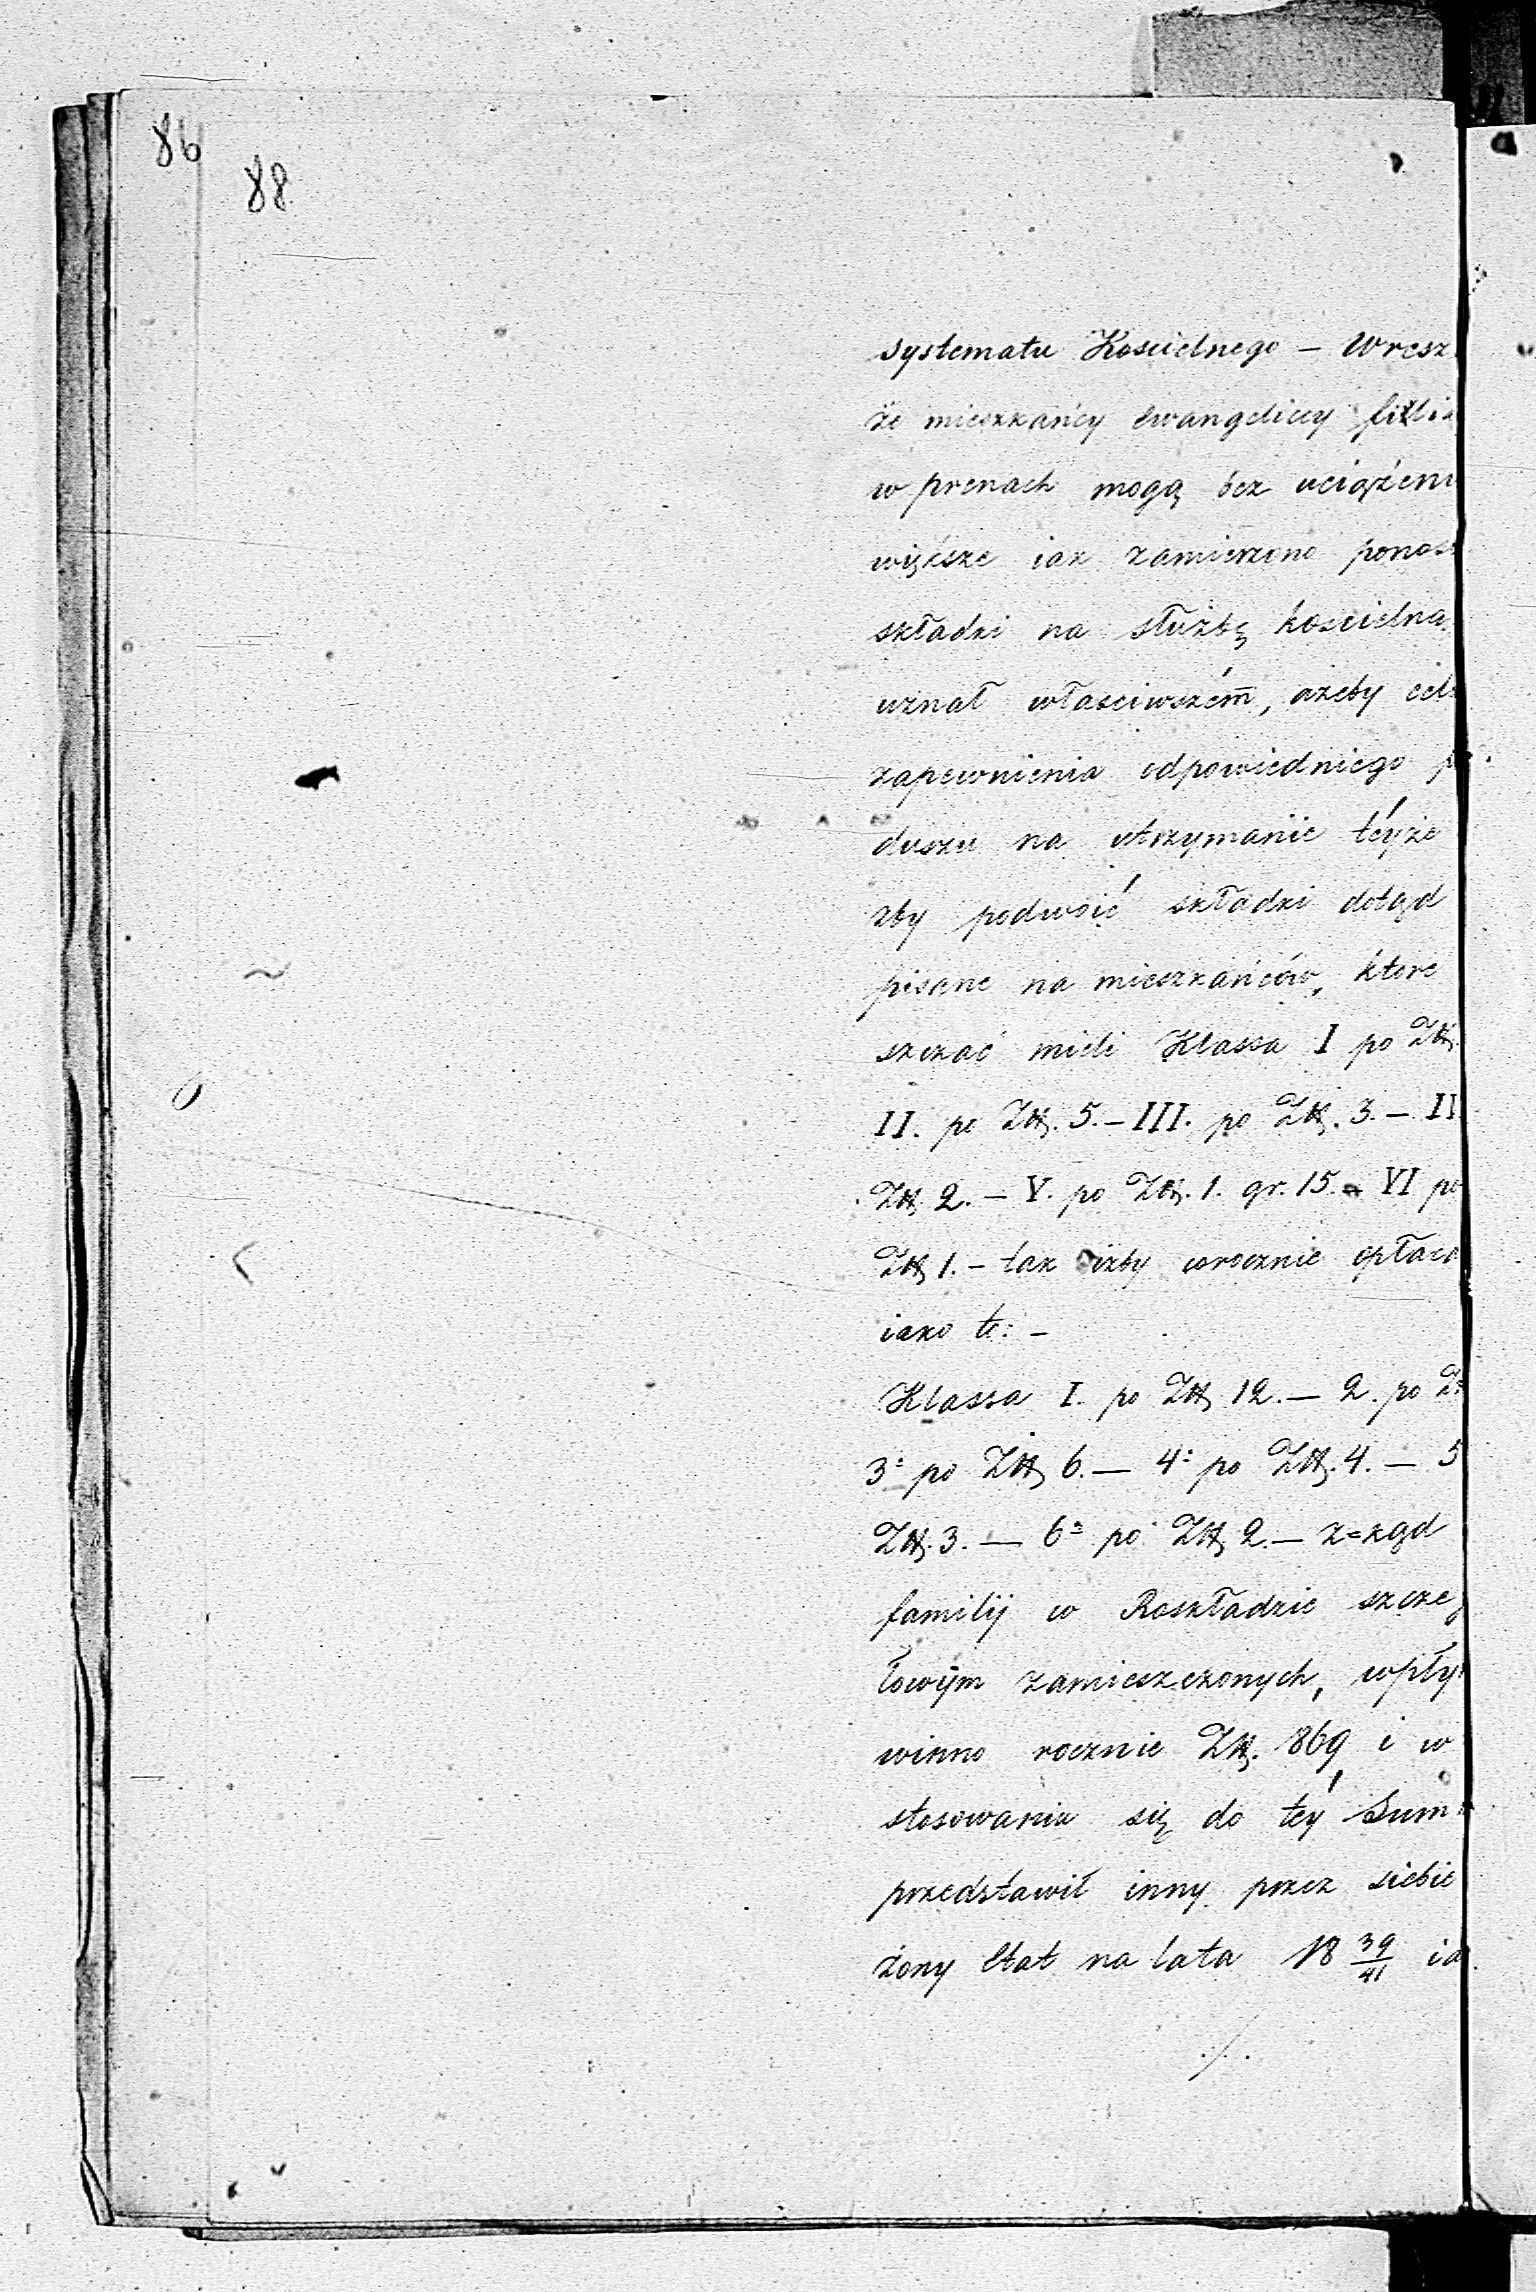 86
88
systematu Kościelnego – Wresz
że mieszkańcy ewangeliccy filli
w prenach mogą bez uciążeni
większe iak zamierzono ponos
składki na służbę kościelną
uznał właściwszém, ażeby cel
zapewnienia odpowiedniego
duszu na utrzymanie téyże
aby podwoić składki dotąd
pisane na mieszkańców, które
szczać mieli Klassa I po Zł.
II. po Zł. 5. – III. po Zł. 3. –
Zł. 2. – V. po Zł. 1. gr. 15. – VI po
Zł. 1. – tak iżby corocznie opłaca
iako to: –
Klassa I. po Zł. 12. – 2. po Z
3: po Zł. 6. – 4: po Zł. 4. – 5
Zł. 3. – 6: po Zł. 2. – z=kąd
familij w Roskładzie szcze
łowym zamieszczonych, wpły
winno rocznie Zł. 869 i w
stosowania się do téy Sum
przedstawił inny przez siebie
żony Etat na lata 18 39/41 ia
./.